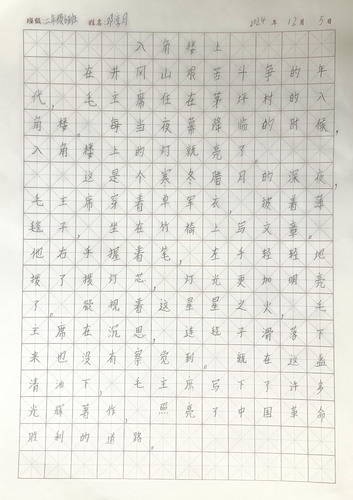 班级：二年级6班 姓名：  月 2024 年 12 月 5 日
入角楼上
在井冈山艰苦斗争的年
代，毛主席住在茅坪村的入
角楼。每当夜幕降临的时候，
入角楼上的灯就亮了。
这是个寒冬腊月的深夜，
毛主席穿着单军衣，披着薄
毯子，坐在竹椅上写文章。
他右手握着笔，左手轻轻地
拨了拨灯芯，灯光更加明亮
了。凝视着这星星之火，毛
主席在沉思，连毯子滑落下
来也没有察觉到。就在这盏
清油下，毛主席写下了许多
光辉著作，照亮了中国革命
胜利的道路。